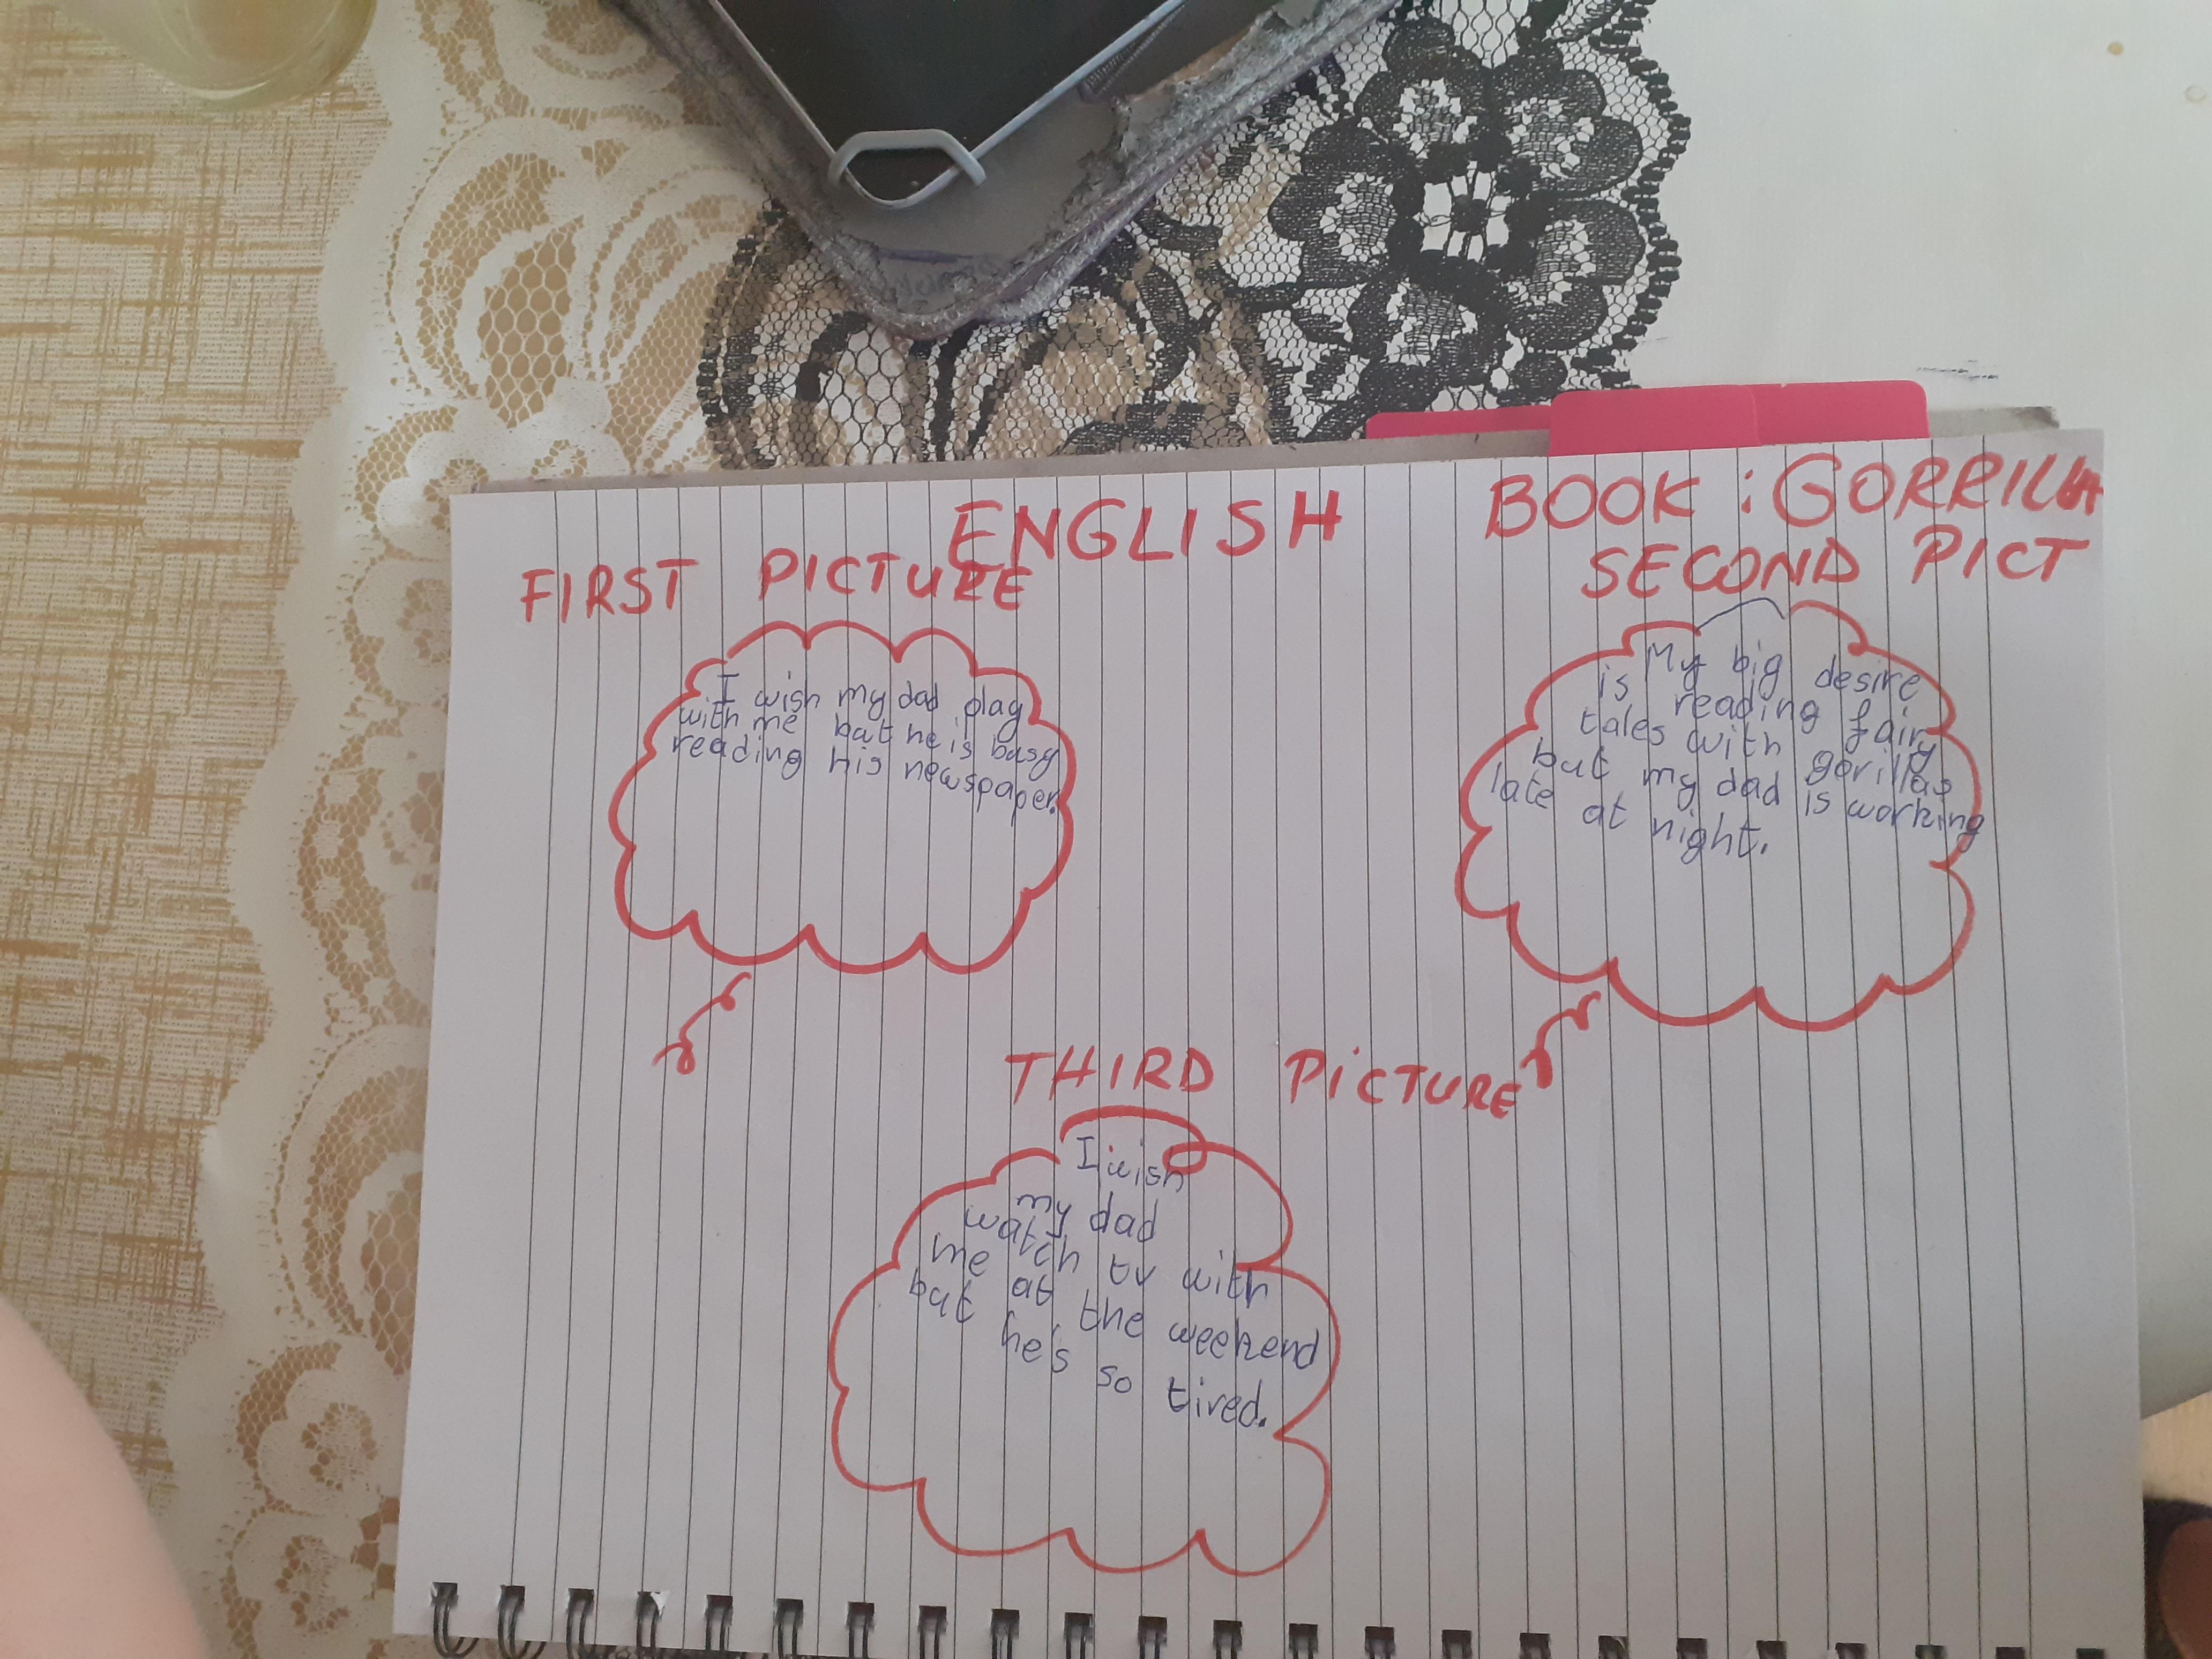 ENGLISH
BOOK : GORRILLA
FIRST PICTURE
I wish my dad play
with me but he is busy
reading his newspaper.
SECOND PICT
My big desire
is reading fairy
tales with gorillas
but my dad is working
late at night.
THIRD PICTURE
I wish
my dad
watch tv with
me at the weekend
but he's so tired.